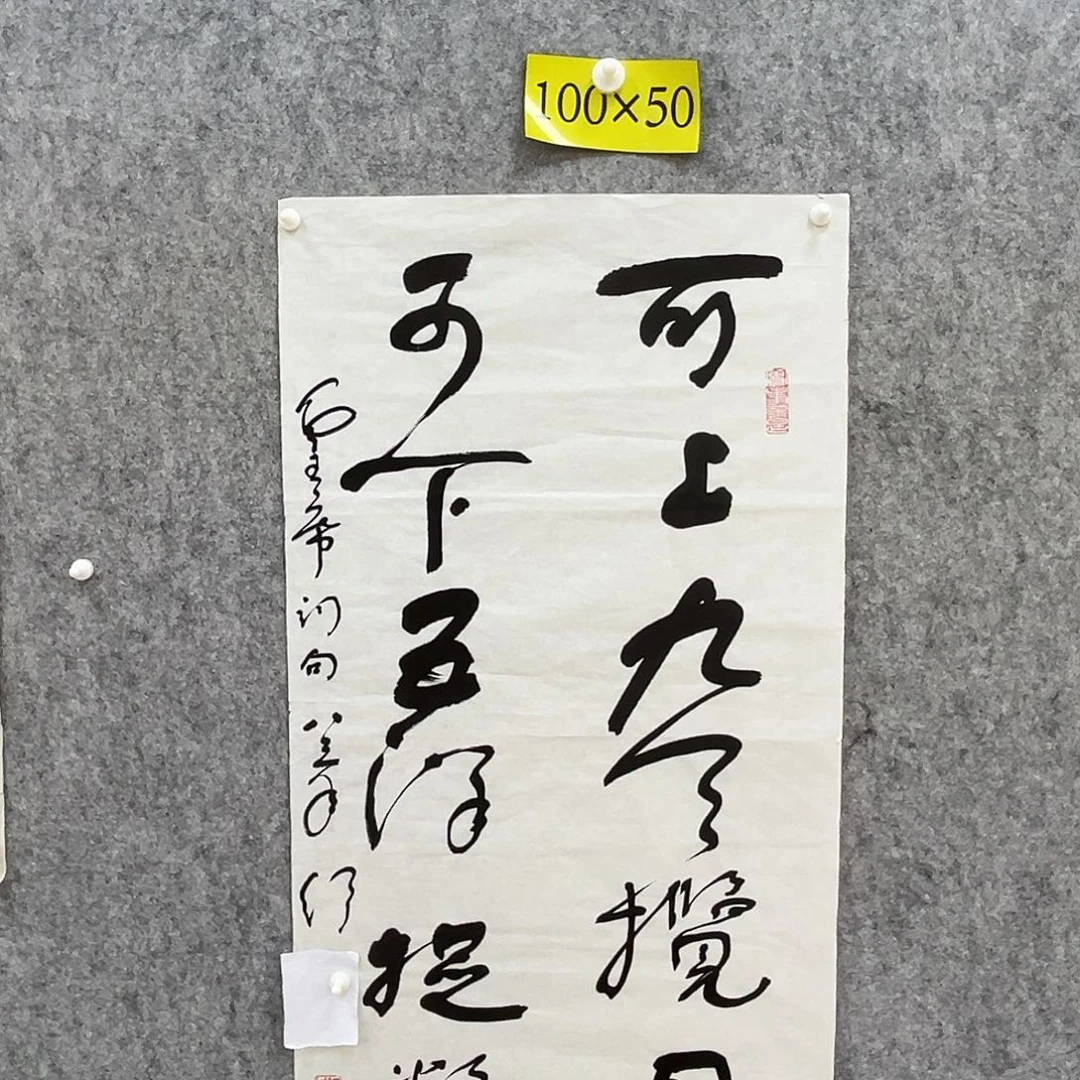 100×50
可上九天攬月
可下五洋捉
毛主席詞句